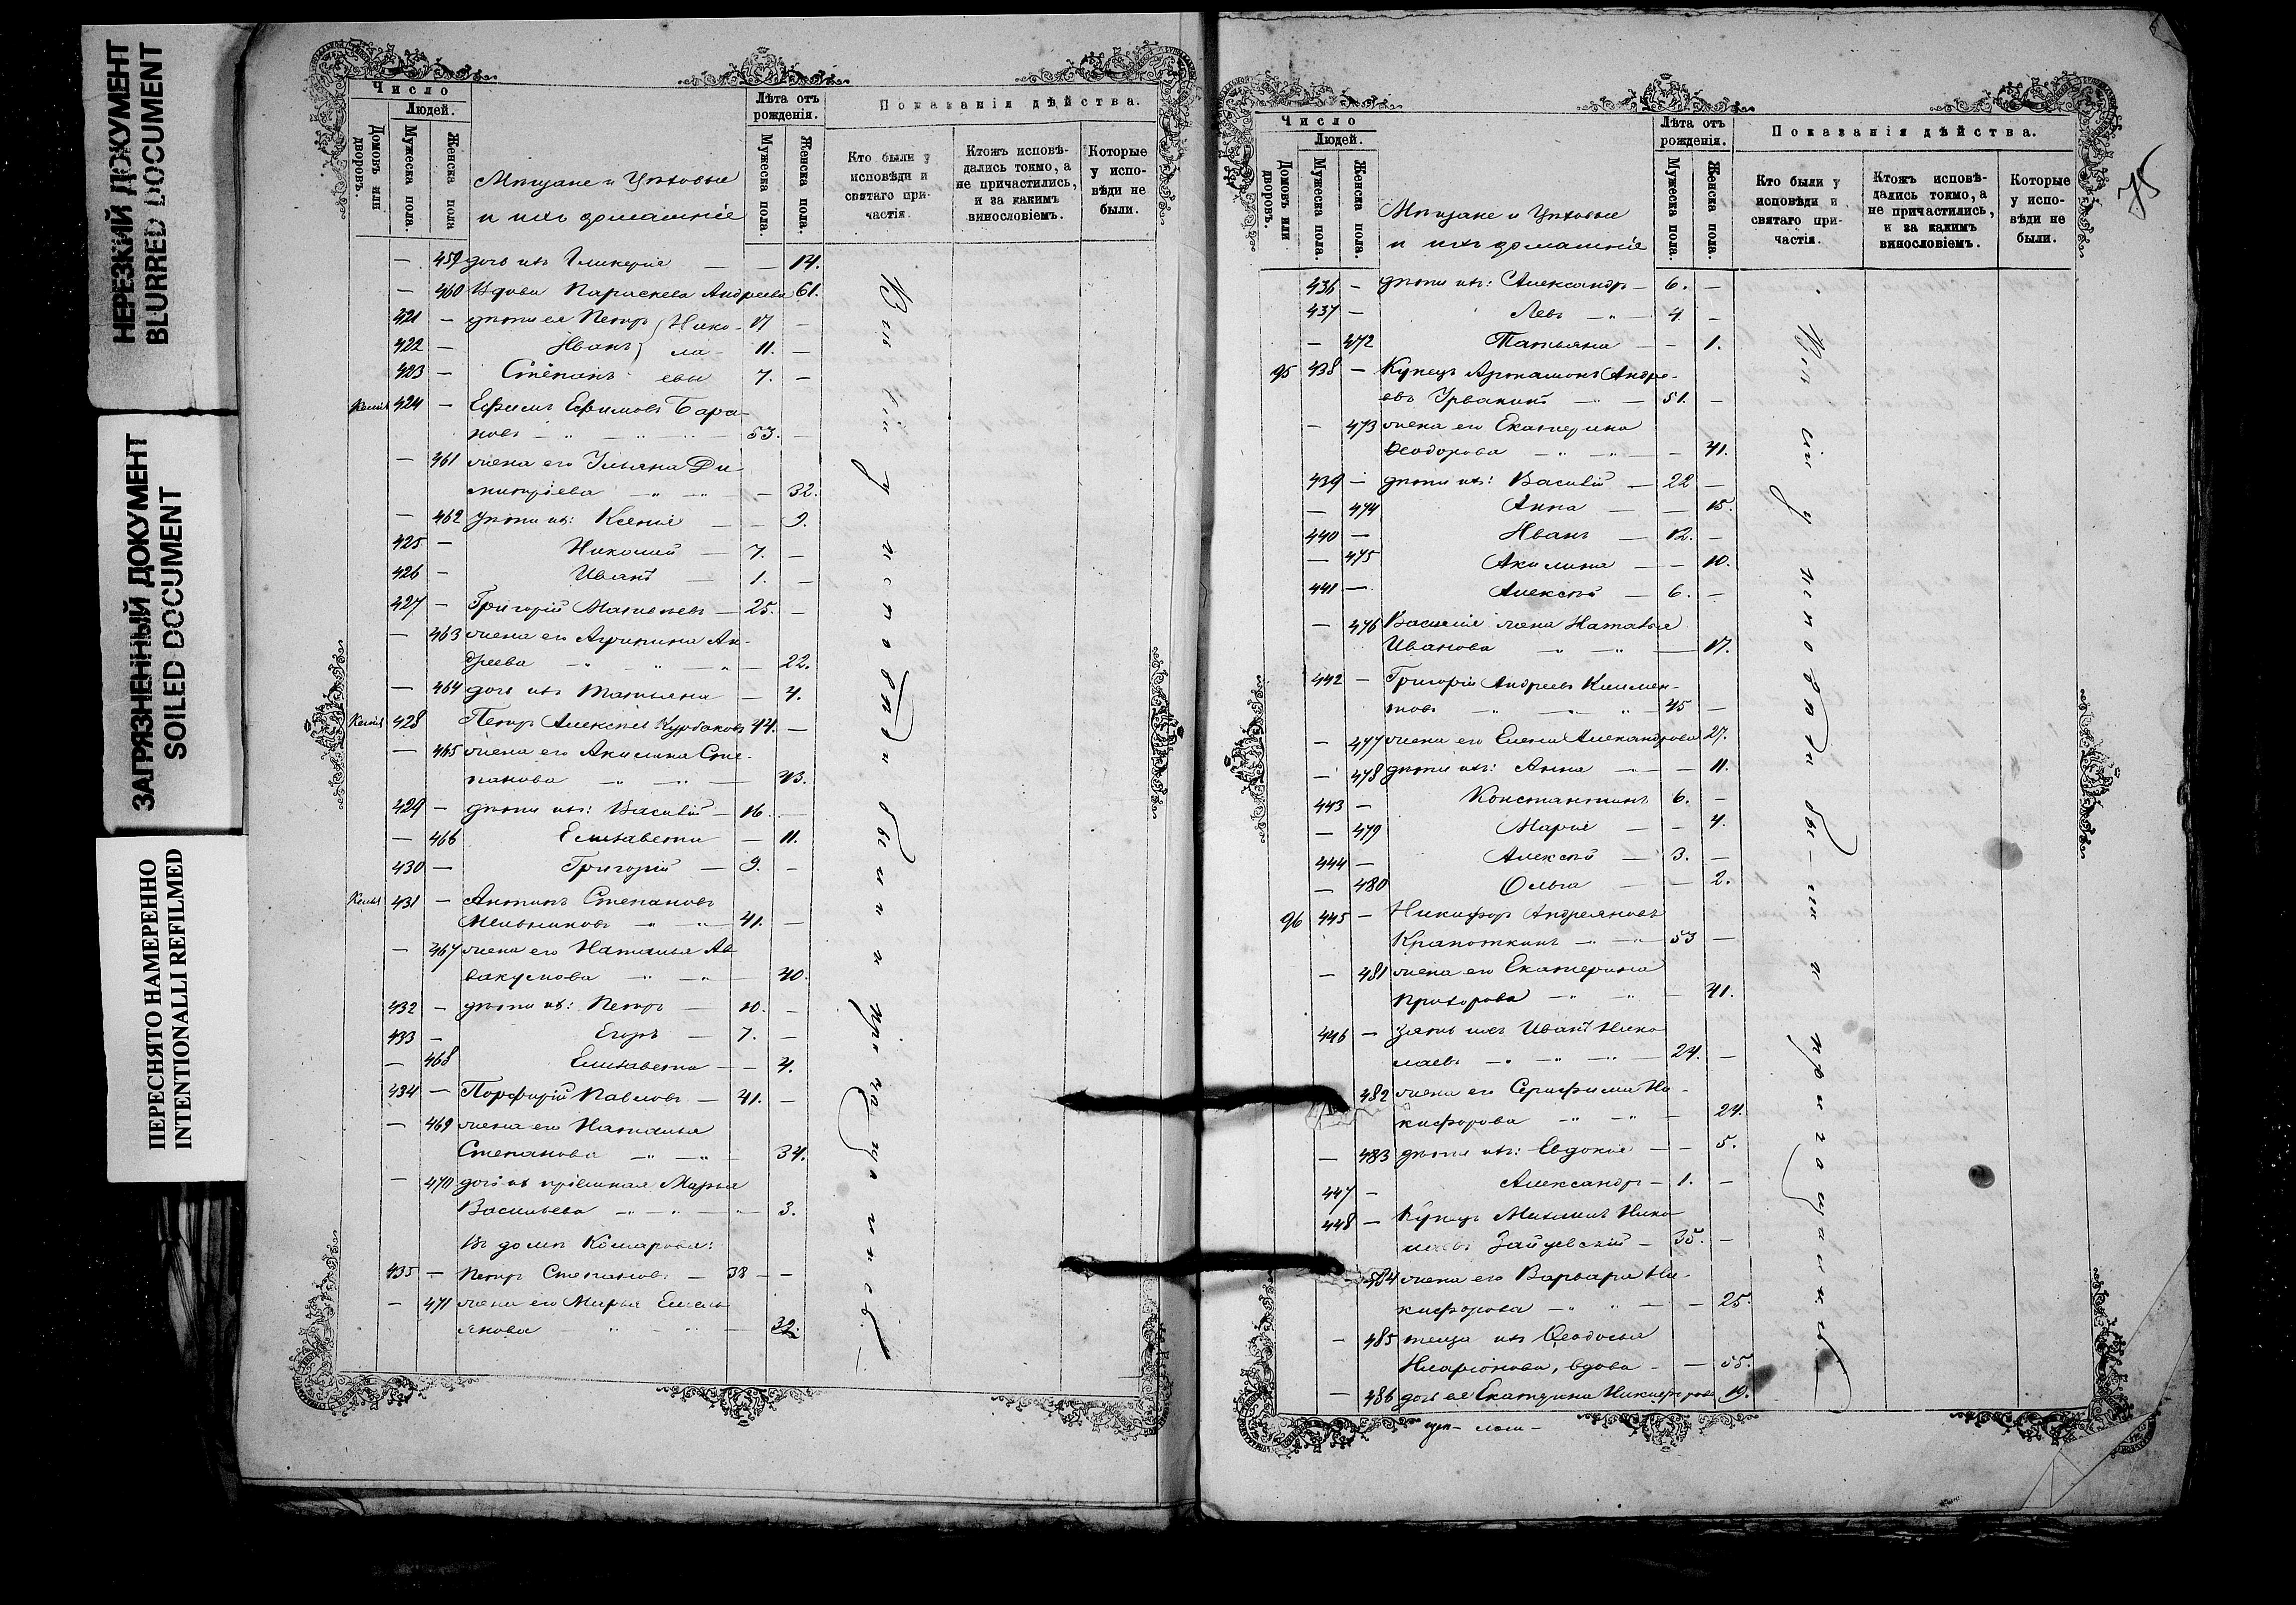 НЕРЕЗКИЙ ДОКУМЕНТ
BLURRED DOCUMENT
ЗАГРЯЗНЕННЫЙ ДОКУМЕНТ
SOILED DOCUMENT
ПЕРЕСНЯТО НАМЕРЕННО
INTENTIONALLI REFILMED
Число
Людей.
Домовъ или дворовъ.
Мужеска пола.
Женска пола
Мѣщане и Цѣховые
и ихъ домашніе
Лѣта отъ рожденія.
Мужеска пола.
Женска пола.
Показанія дѣйства.
Кто были у исповѣди и святаго причастія.
Ктожъ исповѣдались токмо, а не причастились, и за какимъ винословіемъ.
Которые у исповѣди не были.
— 459 дочь ихъ Гликерія — — 14.
— 460 Вдова Параскева Андреева 61.
421 — дѣти ея Петръ Нико- 17 —
422 — Иванъ ла- 11. —
423 — Степанъ евы 7. —
424 — Ефимъ Ефимовъ Бара-
новъ — 53. —
— 461 жена его Ульяна Ди
митріева — 32.
— 462 дѣти ихъ: Ксенія — — 9.
425 — Николай — 7. —
426 — Иванъ — 1. —
427 — Григорій Матвѣевъ — 25. —
— 463 жена его Агрипина Ан-
дреева — 22.
— 464 дочь ихъ Татьяна — 4.
428 Петръ Алексѣев Курбаковъ 44. —
— 465 жена его Акилина Сте-
панова — 43.
429 — дѣти ихъ: Василій — 16. —
— 466 Елизавета — 11.
430 — Григорій — 9. —
431 — Антипъ Степановъ
Мельниковъ — 41. —
— 467 жена его Наталья Ав
вакумова — 40.
432 — дѣти ихъ: Петръ — 10. —
433 — Егоръ — 7. —
— 468 Елизавета — — 4.
434 — Порфирій Павловъ — 41. —
— 469 жена его Наталья
Степанова — 34.
— 470 дочь ихъ пріемная Марья
Васильева — 3.
Въ домѣ Комарова:
435 — Петръ Степановъ — 38 — —
— 471 жена его Марья Емель
янова — 32.
Всѣ сіи у исповѣди были и прічащались.
Число
Людей.
Домовъ или дворовъ.
Мужеска пола.
Женска пола.
Мѣщане и Цѣховые
и ихъ домашніе
Лѣта отъ рожденія.
Мужеска пола.
Женска пола.
Показанія дѣйства.
Кто были у исповѣди и святаго причастія.
Ктожъ исповѣдались токмо, а не причастились, и за какимъ винословіемъ.
Которые у исповѣди не были.
75
436 — дѣти ихъ: Александръ — 6. —
437 — Левъ — 4. —
— 472 Татьяна — — 1.
95 438 — Купецъ Артамонъ Андре-
евъ Урванин — 51. —
— 473 жена его Екатерина
Ѳеодорова — — 41.
439 — дѣти ихъ: Василій — 22 —
— 474 Анна — — 15.
440 — Иванъ — 12. —
— 475 Акилина — — 10.
441 — Алексѣй — 6. —
— 476 Василія жена Наталья
Иванова — 17.
442 — Григорій Андреевъ Климен-
товъ — 45 —
— 477 жена его Елена Александрова 27.
— 478 дѣти ихъ: Анна — — 11.
443 — Константинъ 6. —
— 479 Марія — — 4.
444 — Алексѣй — 3. —
— 480 Ольга — — 2.
96 445 — Никифоръ Андреяновъ
Крапоткинъ — 53 —
— 481 жена его Екатерина
Прохорова — — 41.
446 — зять ихъ Иванъ Нико
лаевъ — 24. —
482 жена его Серафима Ни-
кифорова — 24.
— 483 дѣти ихъ: Евдокія — — 5.
447 — Александръ — 1. —
448 — Купецъ Михаилъ Нико
лаевъ Зайцевскій — 35. —
484 жена его Варвара Ни-
кифорова — — 25.
— 485 теща ихъ Ѳеодосья
Иларіонова, вдова — — 55.
— 486 дочь ея Екатерина Никифорова 19.
Всѣ сіи у исповѣди были и пріобщались